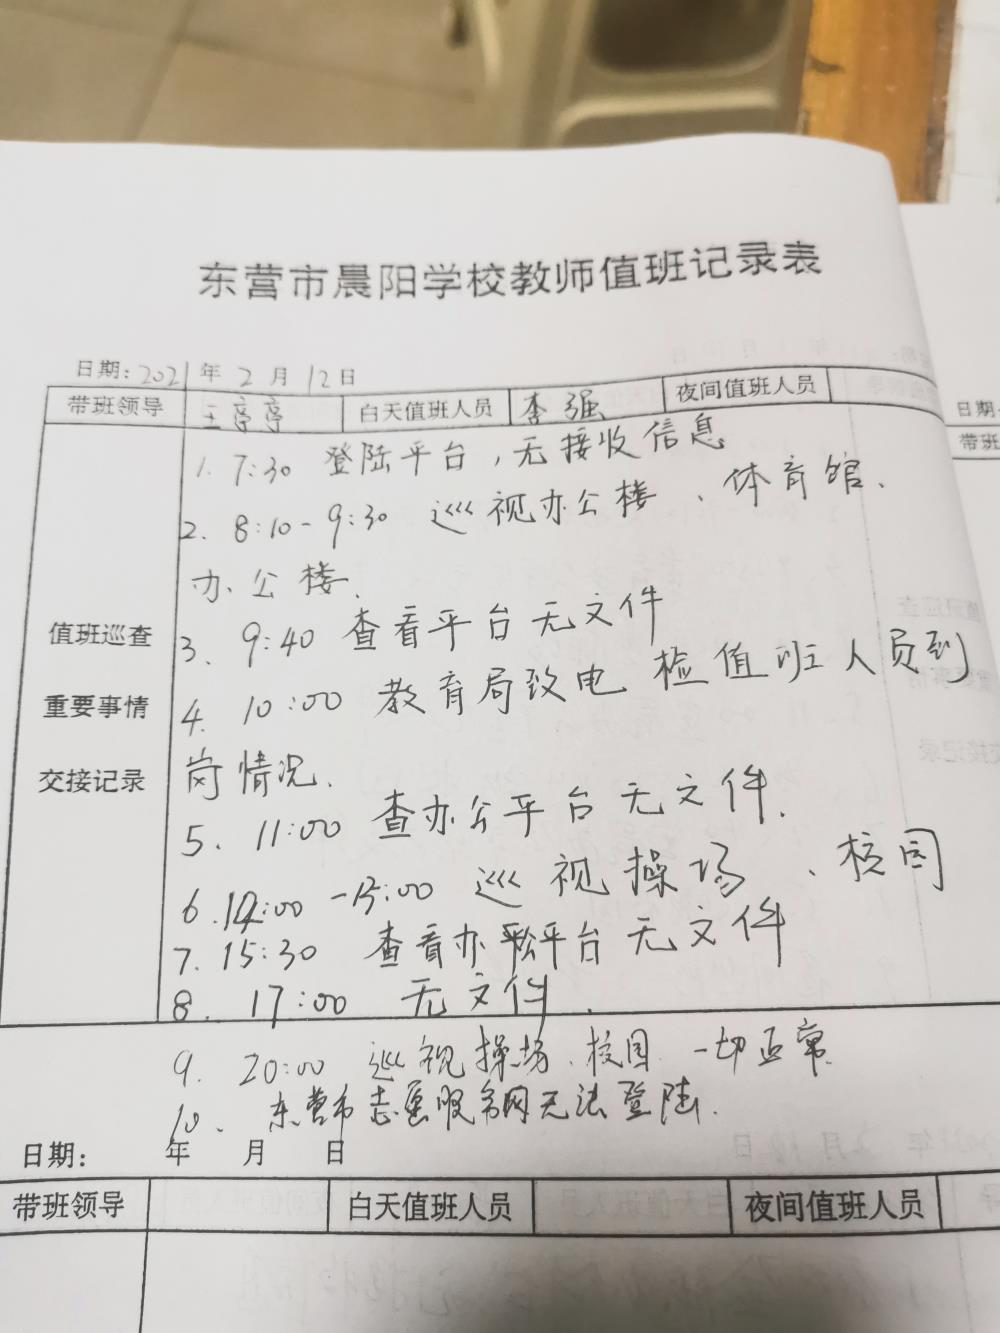 东营市晨阳学校教师值班记录表
日期:2021年2月12日
带班领导 王亭亭 白天值班人员 李强 夜间值班人员
1. 7:30 登陆平台,无接收信息
2. 8:10-9:30 巡视办公楼、体育馆、
办公楼.
值班巡查
3. 9:40 查看平台无文件
重要事情
4. 10:00 教育局致电 检值班人员到
交接记录
岗情况.
5. 11:00 查办公平台无文件.
6. 14:00-15:00 巡视操场、校园
7. 15:30 查看办公平台无文件
8. 17:00 无文件.
9. 20:00 巡视操场、校园 一切正常
10、东营市志愿服务网无法登陆.
日期: 年 月 日
带班领导 白天值班人员 夜间值班人员
日期
带班